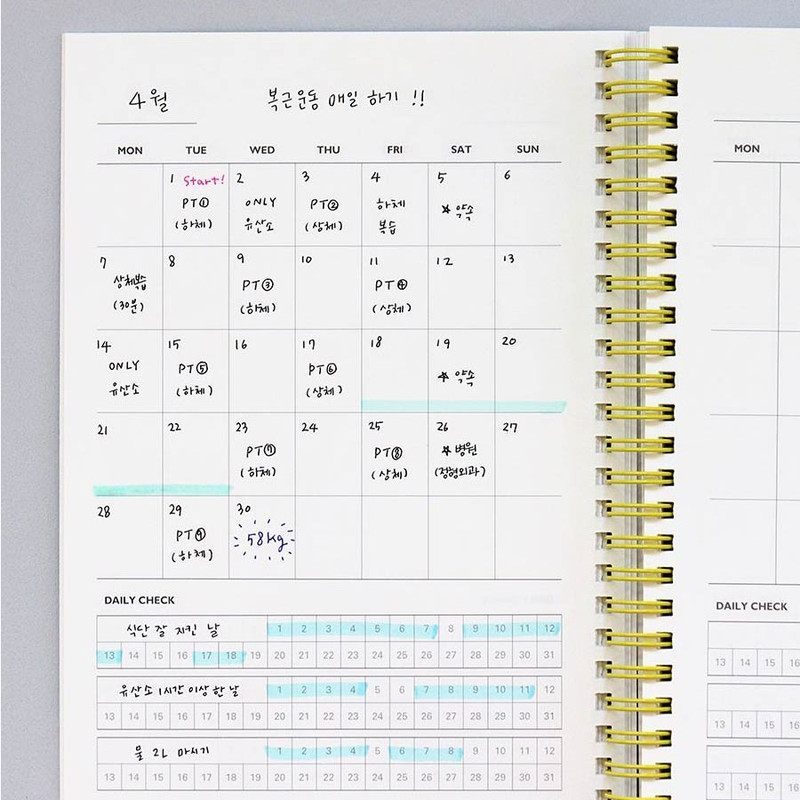 4월
복근운동 매일 하기 !!
MON TUE WED THU FRI SAT SUN
1 Start! 2 3 4 5 6
PT① ONLY PT② 하체 ☆ 약속
(하체) 유산소 (상체) 복습
7 8 9 10 11 12 13
상체복습 PT③ PT④
(30분) (하체) (상체)
14 15 16 17 18 19 20
ONLY PT⑤ PT⑥ ☆ 약속
유산소 (하체) (상체)
21 22 23 24 25 26 27
PT⑦ PT⑧ ☆ 병원
(하체) (상체) (정형외과)
28 29 30
PT⑨ 58kg
(하체)
DAILY CHECK
식단 잘 지킨 날 1 2 3 4 5 6 7 8 9 10 11 12
13 14 15 16 17 18 19 20 21 22 23 24 25 26 27 28 29 30 31
유산소 1시간 이상 한 날 1 2 3 4 5 6 7 8 9 10 11 12
13 14 15 16 17 18 19 20 21 22 23 24 25 26 27 28 29 30 31
물 2L 마시기 1 2 3 4 5 6 7 8 9 10 11 12
13 14 15 16 17 18 19 20 21 22 23 24 25 26 27 28 29 30 31
MON
DAILY CHECK
13 14 15 16
13 14 15 16
13 14 15 16